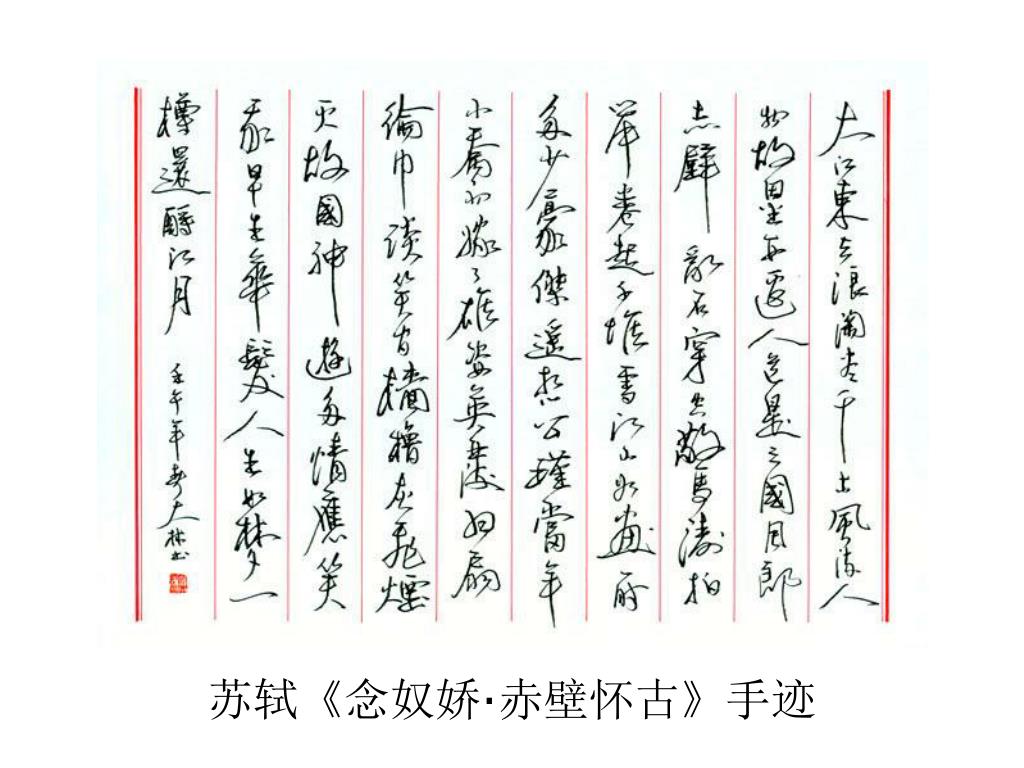 大江東去浪淘盡千古風流人
物故壘西邊人道是三國周郎
赤壁亂石穿空驚濤拍
岸卷起千堆雪江山如畫一時
多少豪傑遙想公瑾當年
小喬初嫁了雄姿英發羽扇
綸巾談笑間檣櫓灰飛煙
滅故國神遊多情應笑
我早生華髮人生如夢一
樽還酹江月
壬午年
苏轼《念奴娇·赤壁怀古》手迹